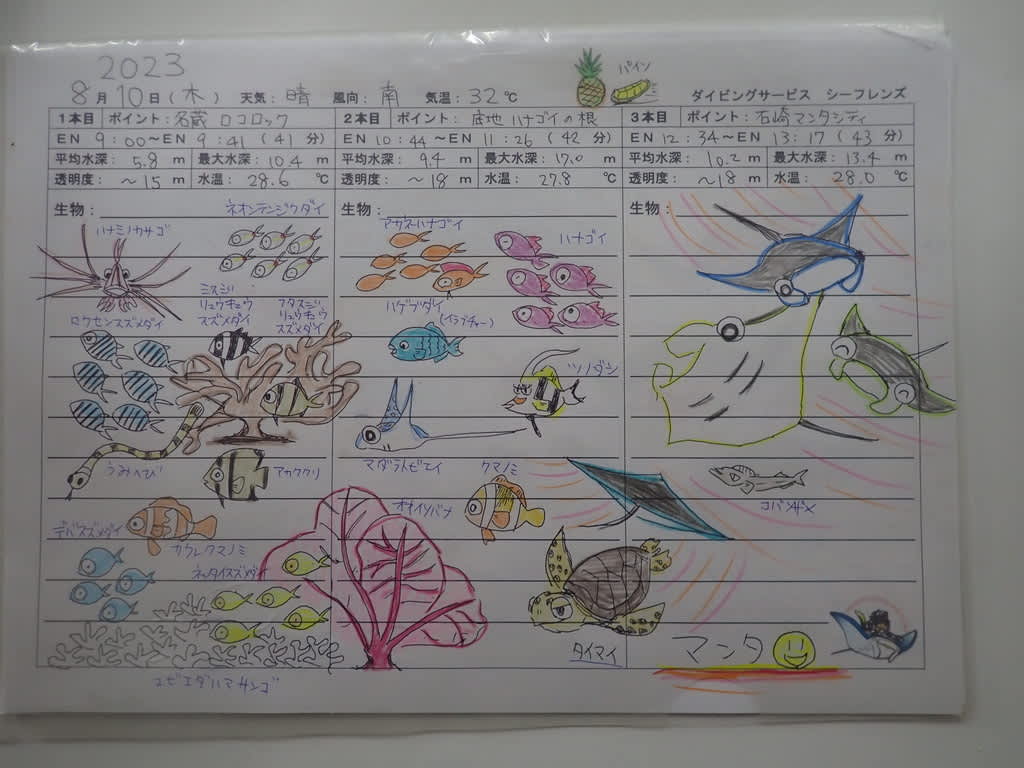 2023
8月10日(木) 天気:晴 風向:南 気温:32℃ パイン ダイビングサービス シーフレンズ
1本目 ポイント:名蔵 ロコロック
EN 9:00〜EN 9:41(41分)
平均水深:5.8m 最大水深:10.4m
透明度:〜15m 水温:28.6℃
生物:
ネオンテンジクダイ
ハナミノカサゴ
ミスジリュウキュウスズメダイ
フタスジリュウキュウスズメダイ
ロクセンスズメダイ
うみへび
アカククリ
デバスズメダイ
カクレクマノミ
ネッタイスズメダイ
ユビエダハマサンゴ
2本目 ポイント:底地 ハナゴイの根
EN 10:44〜EN 11:26(42分)
平均水深:9.4m 最大水深:17.0m
透明度:〜18m 水温:27.8℃
生物:
アカネハナゴイ
ハナゴイ
ハゲブダイ
(イラブチャー)
ツノダシ
マダラトビエイ
クマノミ
オオイソバナ
タイマイ
3本目 ポイント:石崎マンタシティ
EN 12:34〜EN 13:17(43分)
平均水深:10.2m 最大水深:13.4m
透明度:〜18m 水温:28.0℃
生物:
コバンザメ
マンタ